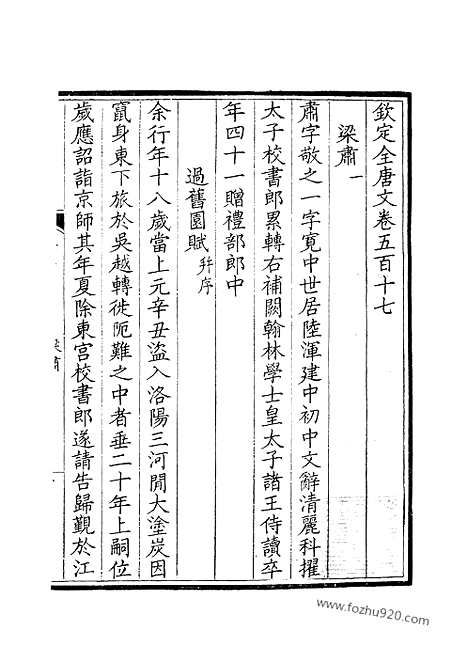 欽定全唐文卷五百十七
梁肅一
肅字敬之一字寛中世居陸渾建中初中文辭清麗科擢
太子校書郎累轉右補闕翰林學士皇太子諸王侍讀卒
年四十一贈禮部郎中
過舊園賦幷序
余行年十八歲當上元辛丑盜入洛陽三河閒大塗炭因
竄身東下旅於吳越轉徙阨難之中者垂二十年上嗣位
歲應詔詣京師其年夏除東宮校書郎遂請告歸覲於江
www.fozhu920.com